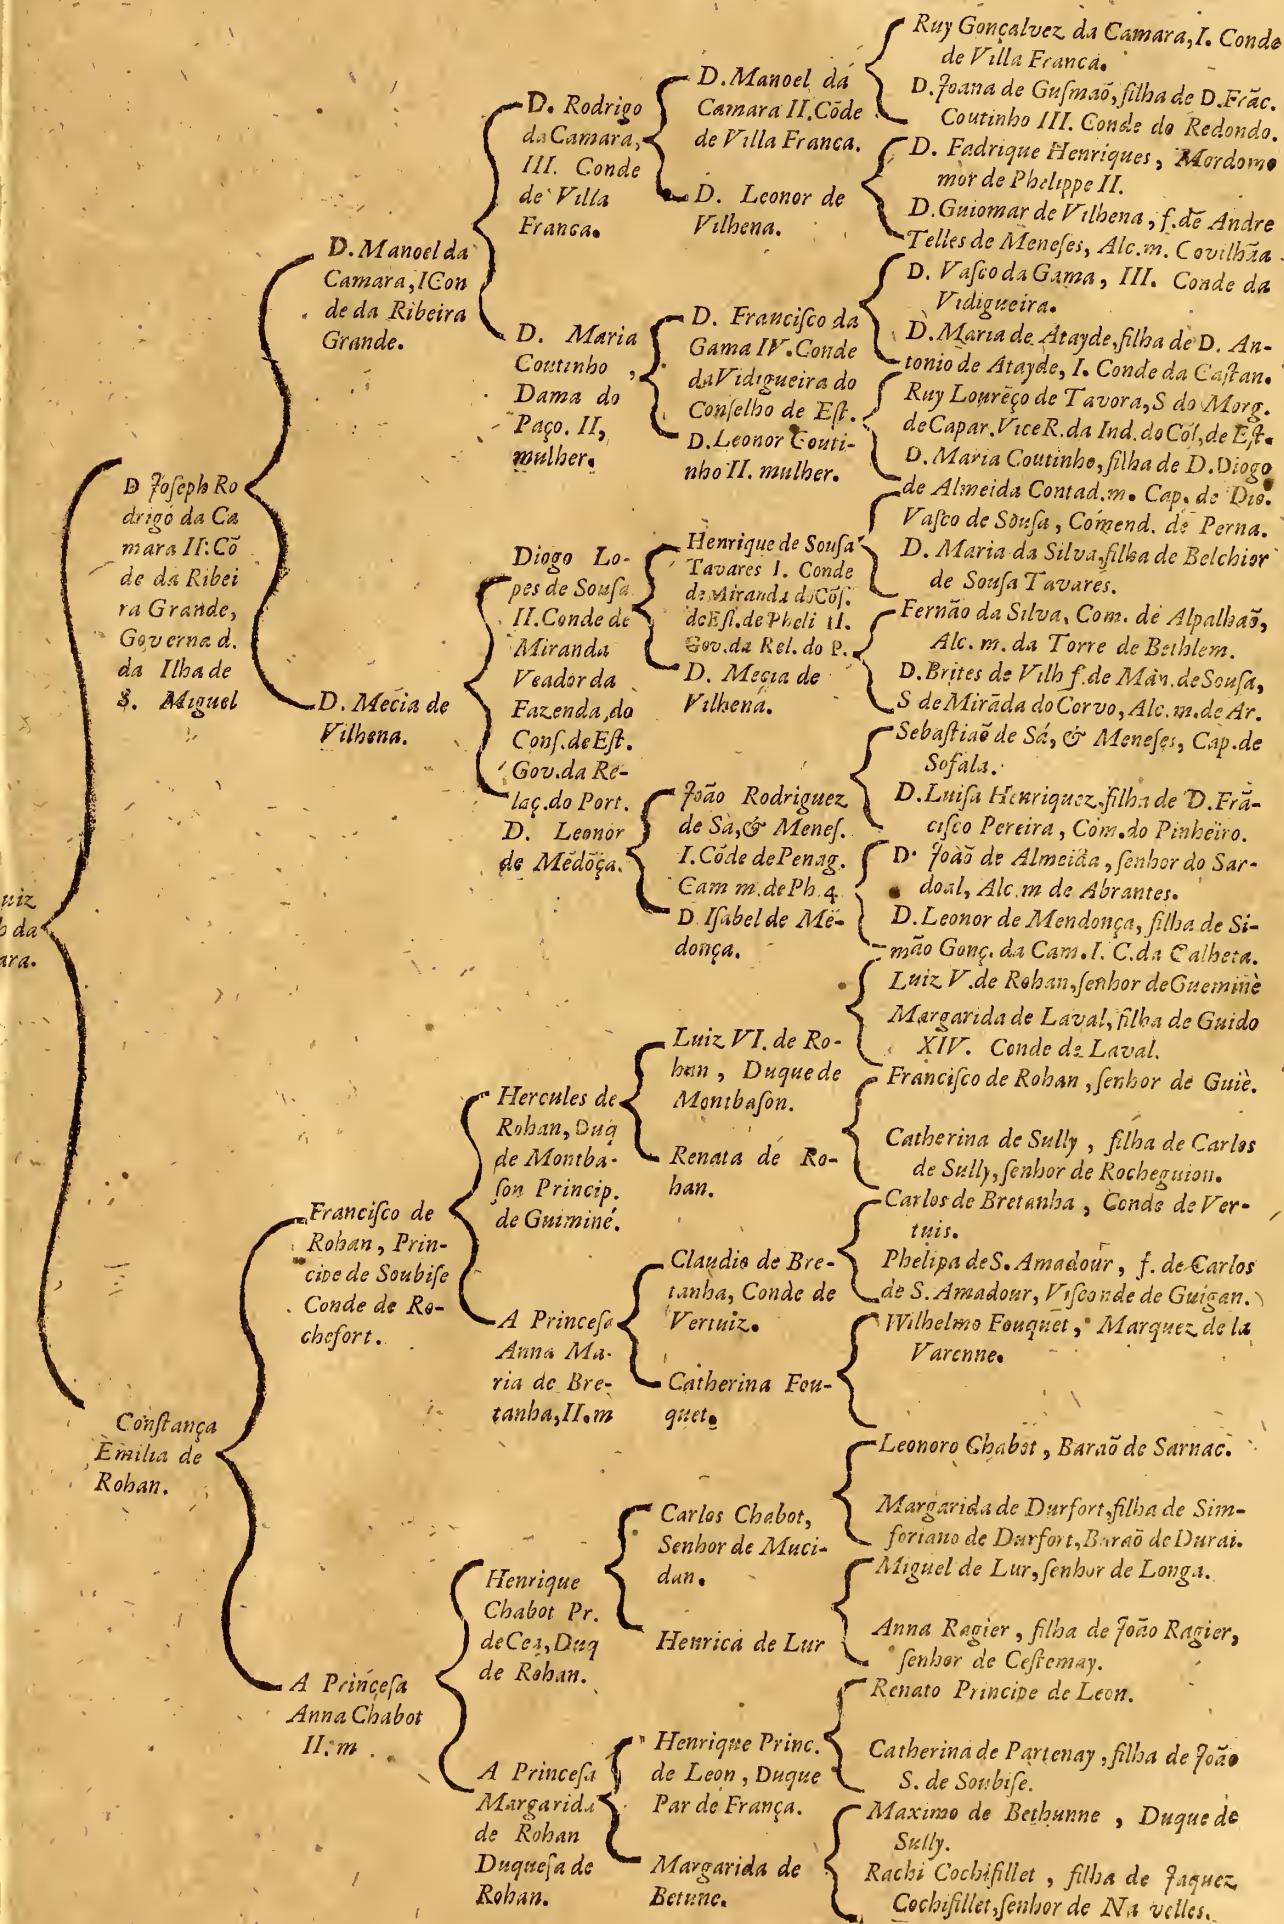 uiz
da
ara.
D Joſeph Ro
drigo da Ca
mara II. Cõ
de da Ribei
ra Grande,
Governa d.
da Ilha de
S. Miguel
Conſtança
Emilia de
Rohan.
D. Manoel da
Camara, I Con
de da Ribeira
Grande.
D. Mecia de
Vilhena.
Franciſco de
Rohan, Prin-
cipe de Soubiſe
Conde de Ro-
chefort.
A Princeſa
Anna Chabot
II. m
D. Rodrigo
da Camara,
III. Conde
de Villa
Franca.
D. Maria
Coutinho,
Dama do
Paço. II,
mulher.
Diogo Lo-
pes de Souſa
II. Conde de
Miranda
Veador da
Fazenda, do
Conſ. de Eſt.
Gov. da Re-
laç. do Port.
D. Leonor
de Mẽdõça.
Hercules de
Rohan, Duq
de Montba-
ſon Princip.
de Guiminé.
A Princeſa
Anna Ma-
ria de Bre-
tanha, II. m
Henrique
Chabot Pr.
de Cea, Duq
de Rohan.
A Princeſa
Margarida
de Rohan
Duqueſa de
Rohan.
D. Manoel da
Camara II. Cõde
de Villa Franca.
D. Leonor de
Vilhena.
D. Franciſco da
Gama IV. Conde
da Vidigueira do
Conſelho de Eſt.
D. Leonor Couti-
nho II. mulher.
Henrique de Souſa
Tavares I. Conde
de Miranda do Cõſ.
de Eſt. de Pheli II.
Gov. da Rel. do P.
D. Mecia de
Vilhena.
João Rodriguez
de Sa, & Meneſ.
I. Cõde de Penag.
Cam m. de Ph. 4
D. Iſabel de Mẽ-
donça.
Luiz VI. de Ro-
han, Duque de
Montbaſon.
Renata de Ro-
han.
Claudio de Bre-
tanha, Conde de
Vertuiz.
Catherina Fou-
quet.
Carlos Chabot,
Senhor de Muci-
dan.
Henrica de Lur
Henrique Princ.
de Leon, Duque
Par de França.
Margarida de
Betune.
Ruy Gonçalvez da Camara, I. Conde
de Villa Franca.
D. Joana de Guſmaõ, filha de D. Frãc.
Coutinho III. Conde do Redondo.
D. Fadrique Henriques, Mordomo
mòr de Phelippe II.
D. Guiomar de Vilhena, f. de Andre
Telles de Meneſes, Alc. m. Covilhãa
D. Vaſco da Gama, III. Conde da
Vidigueira.
D. Maria de Atayde, filha de D. An-
tonio de Atayde, I. Conde da Caſtan.
Ruy Lourẽço de Tavora, S do Morg.
de Capar. Vice R. da Ind. do Cõſ, de Eſt.
D. Maria Coutinho, filha de D. Diogo
de Almeida Contad. m. Cap. de Dio.
Vaſco de Souſa, Comend. de Perna.
D. Maria da Silva, filha de Belchior
de Souſa Tavares.
Fernão da Silva, Com. de Alpalhaõ,
Alc. m. da Torre de Bethlem.
D. Brites de Vilh f. de Man. de Souſa,
S de Mirãda do Corvo, Alc. m. de Ar.
Sebaſtiaõ de Sá, & Meneſes, Cap. de
Sofala.
D. Luiſa Henriquez, filha de D. Frã-
ciſco Pereira, Com. do Pinheiro.
D. Joaõ de Almeida, ſenhor do Sar-
doal, Alc. m de Abrantes.
D. Leonor de Mendonça, filha de Si-
mão Gonç. da Cam. I. C. da Calheta.
Luiz V. de Rohan, ſenhor de Gueminè
Margarida de Laval, filha de Guido
XIV. Conde de Laval.
Franciſco de Rohan, ſenhor de Guiè.
Catherina de Sully, filha de Carlos
de Sully, ſenhor de Rocheguion.
Carlos de Bretanha, Conde de Ver-
tuis.
Phelipa de S. Amadour, f. de Carlos
de S. Amadour, Viſconde de Guigan.
Wilhelmo Fouquet, Marquez de la
Varenne.
Leonoro Chabot, Baraõ de Sarnac.
Margarida de Durfort, filha de Sim-
foriano de Durfort, Baraõ de Durai.
Miguel de Lur, ſenhor de Longa.
Anna Ragier, filha de João Ragier,
ſenhor de Ceſtemay.
Renato Principe de Leon.
Catherina de Partenay, filha de João
S. de Soubiſe.
Maximo de Bethunne, Duque de
Sully.
Rachi Cochifillet, filha de Jaquez
Cochifillet, ſenhor de Na velles.